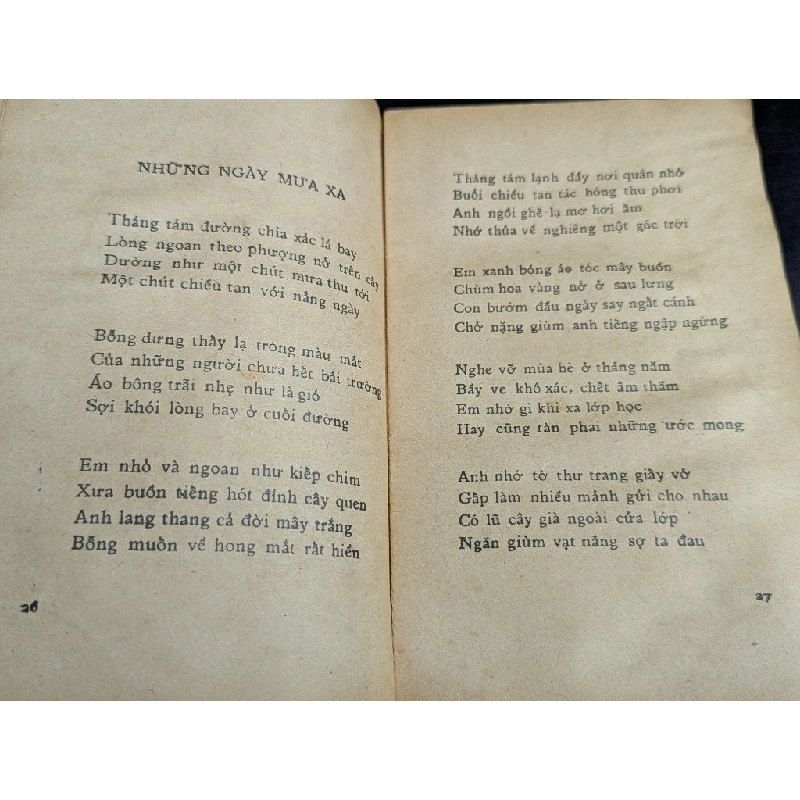 NHỮNG NGÀY MƯA XA
Tháng tám đường chia xác lá bay
Lòng ngoan theo phượng nở trên cây
Dường như một chút mưa thu tới
Một chút chiều tan với nắng ngày
Bỗng dưng thấy lạ trong màu mắt
Của những người chưa hết bãi trường
Áo bông trãi nhẹ như là gió
Sợi khói lòng bay ở cuối đường
Em nhỏ và ngoan như kiếp chim
Xưa buồn tiếng hót đính cây quen
Anh lang thang cả đời mây trắng
Bỗng muốn về hong mắt rất hiền
26
Tháng tám lạnh đầy nơi quán nhỏ
Buổi chiều tan tác hóng thu phơi
Anh ngồi ghế lạ mơ hơi ấm
Nhớ thủa về nghiêng một góc trời
Em xanh bóng áo tóc mây buồn
Chùm hoa vàng nở ở sau lưng
Con bướm đầu ngày say ngất cánh
Chở nặng giùm anh tiếng ngập ngừng
Nghe vỡ mùa hè ở tháng năm
Bầy ve khô xác, chết âm thầm
Em nhớ gì khi xa lớp học
Hay cũng tàn phai những ước mong
Anh nhớ tờ thư trang giấy vở
Gấp làm nhiều mảnh gửi cho nhau
Có lũ cây già ngoài cửa lớp
Ngăn giùm vạt nắng sợ ta đau
27